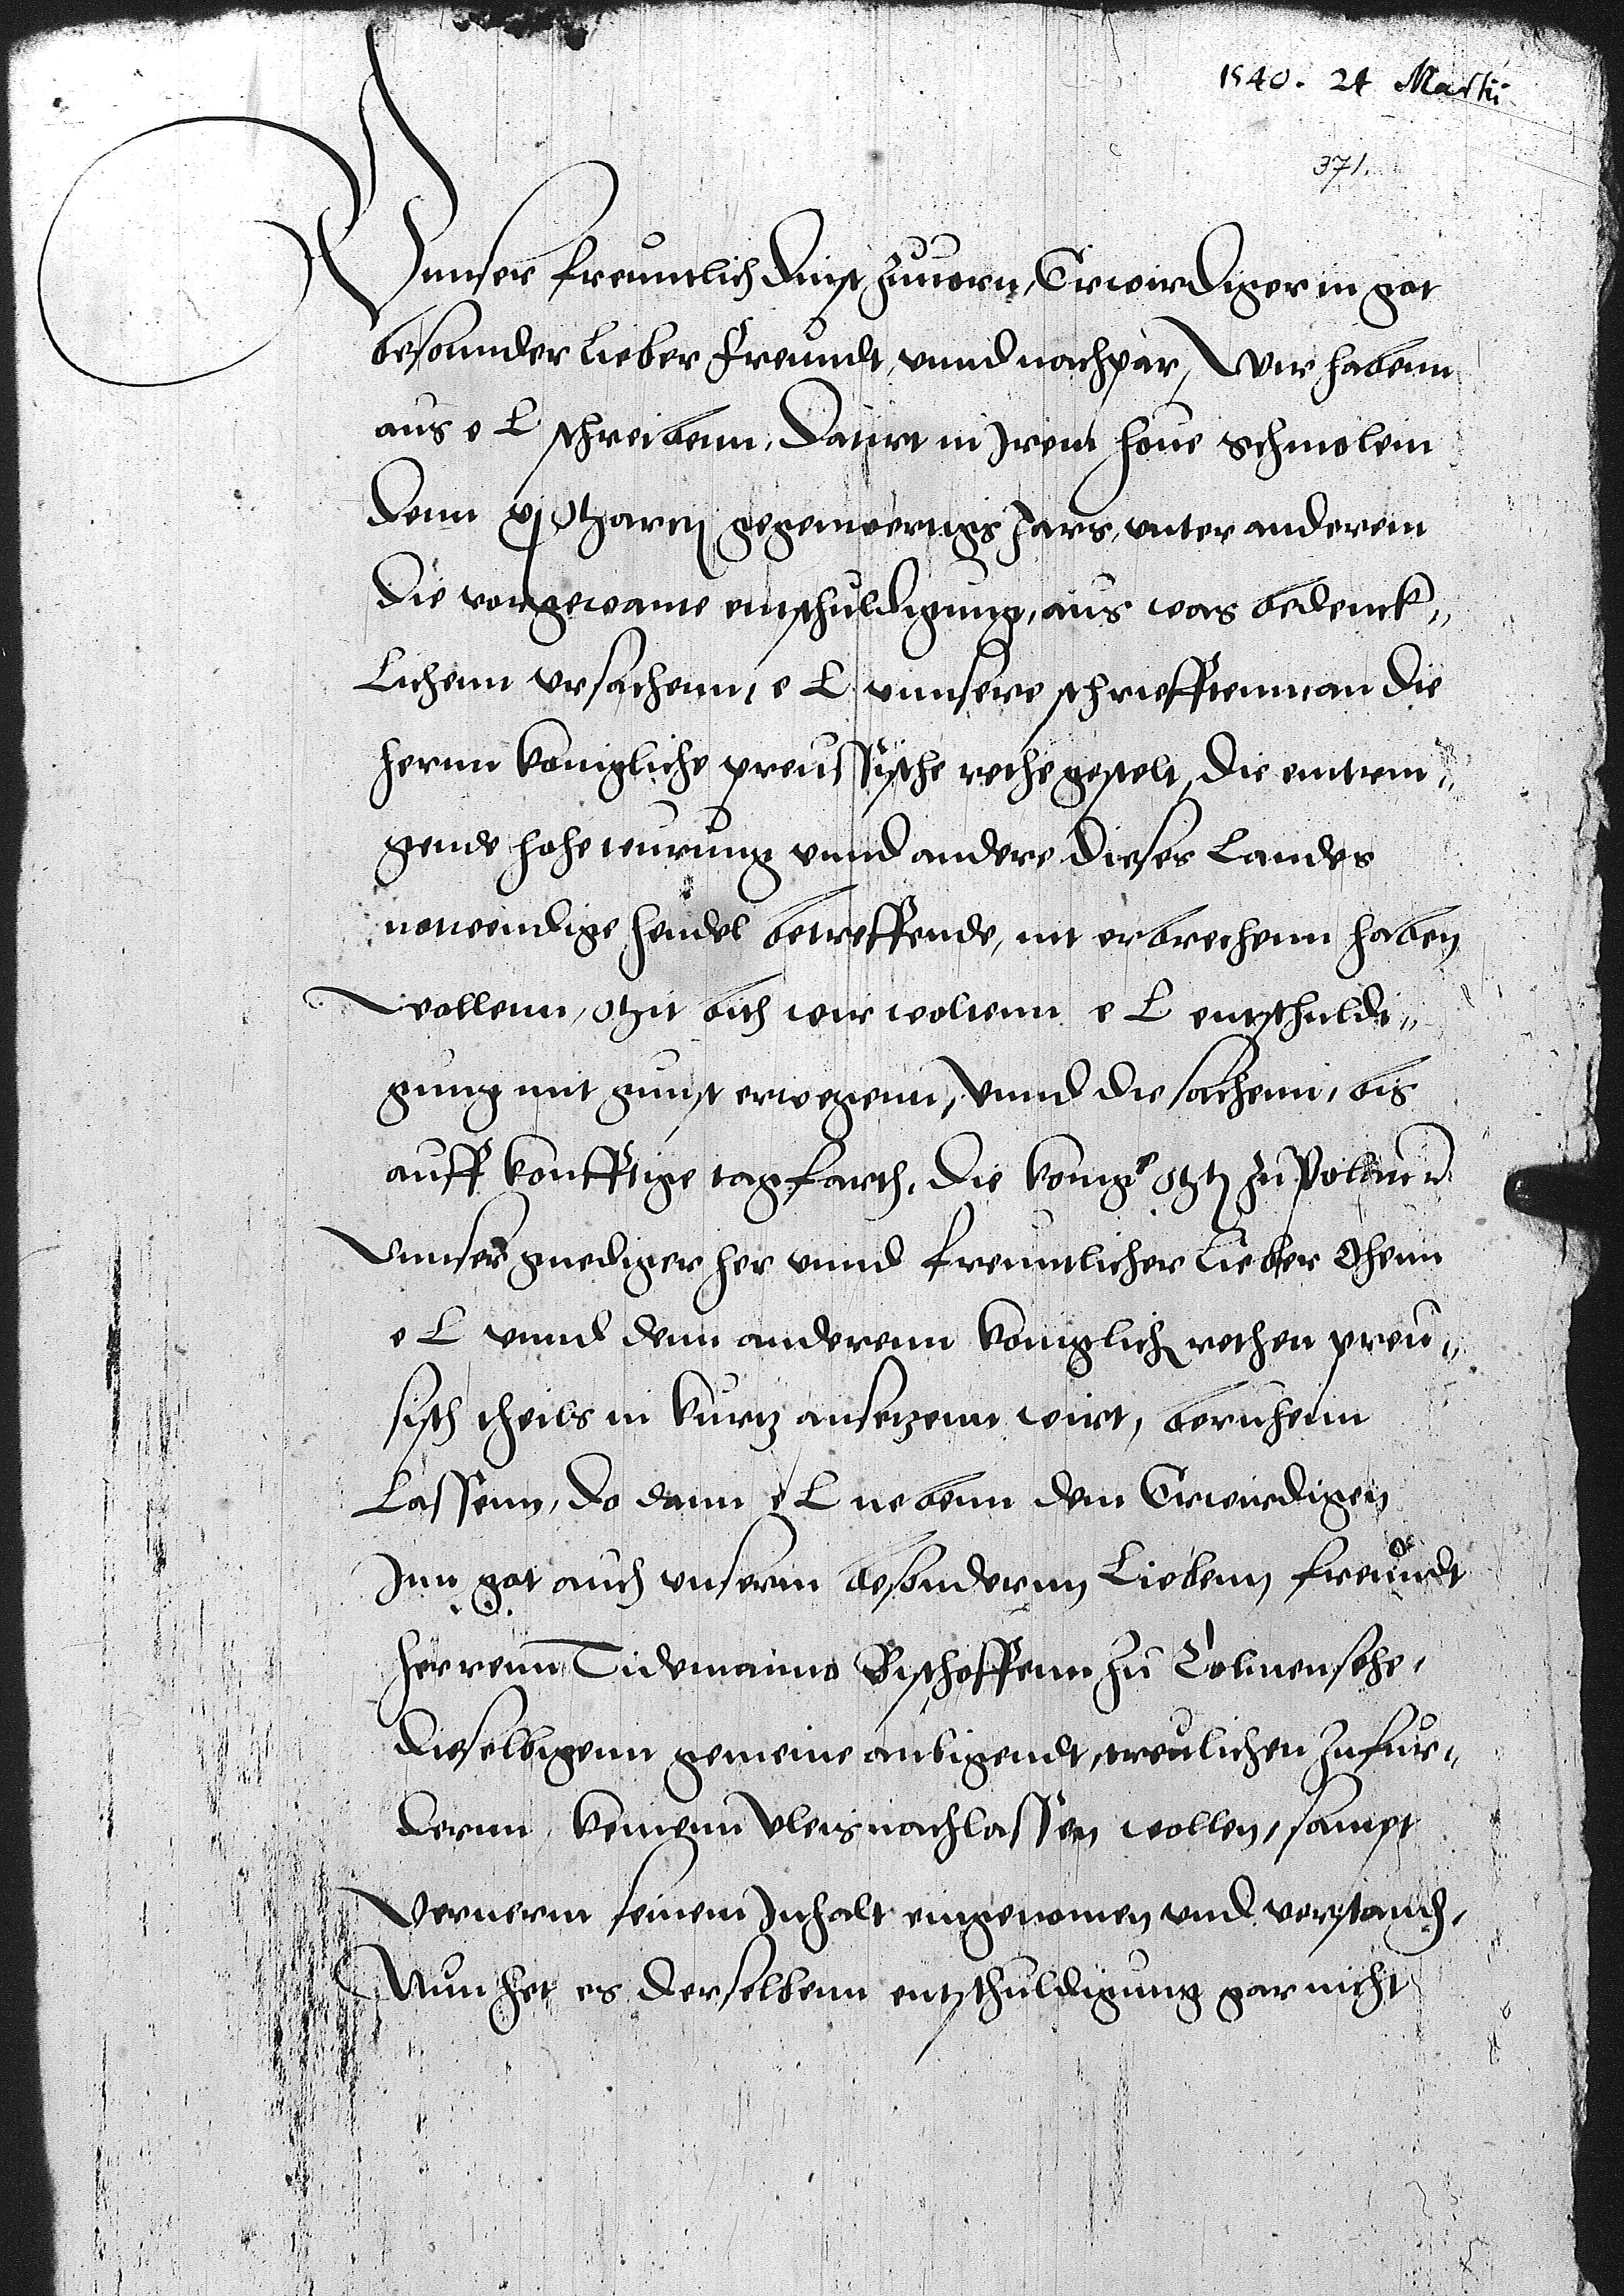 1540. 24 Martii
371.
Vnnser freuntlich dinst zuuorn, Erwirdiger in got
besonnder lieber Freundt, vnnd nachpar, Wir habenn
aus e L schreibenn, Datirt in Irem houe Schmolein
denn xj Martij gegenwertigs Jars, vnter anderem
die vorgewante entschuldigung, aus was bedenck„
Lichenn vrsachenn, e L vnnsere schriefftenn an die
hernn konigliche preussische rethe gestelt, die eintrin„
gende hohe muntzung vnnd andere dieses Landes
notwendige hendel betreffende, nit erbrechenn haben
wollenn, Mit bith wir woltenn e L entschuldi„
gung mit gunst erwegenn, Vnnd die sachenn, bis
auff konfftige tagfarth, die konig Mt zu Polann
Vnnser gnediger her vnnd freuntlicher lieber Ohem
e L vnnd denn anderenn koniglich rethen preu„
sisch theils in kurtz ansetzenn wirt, beruhenn
Lassenn, do dann e L nebenn dem Erwirdigen
Inn got auch vnserm besondernn Liebenn freundt
herrenn Tidemanno Bischoffenn zu Colmensehe,
dieselbigenn gemeine anligendt, treulichen zu fur„
dernn, keinenn vleis nachlassen wollen, sampt
Vernerm seinem Inhalt eingenomen vnd verstand,
Nun het es derselbenn entschuldigung gar nicht